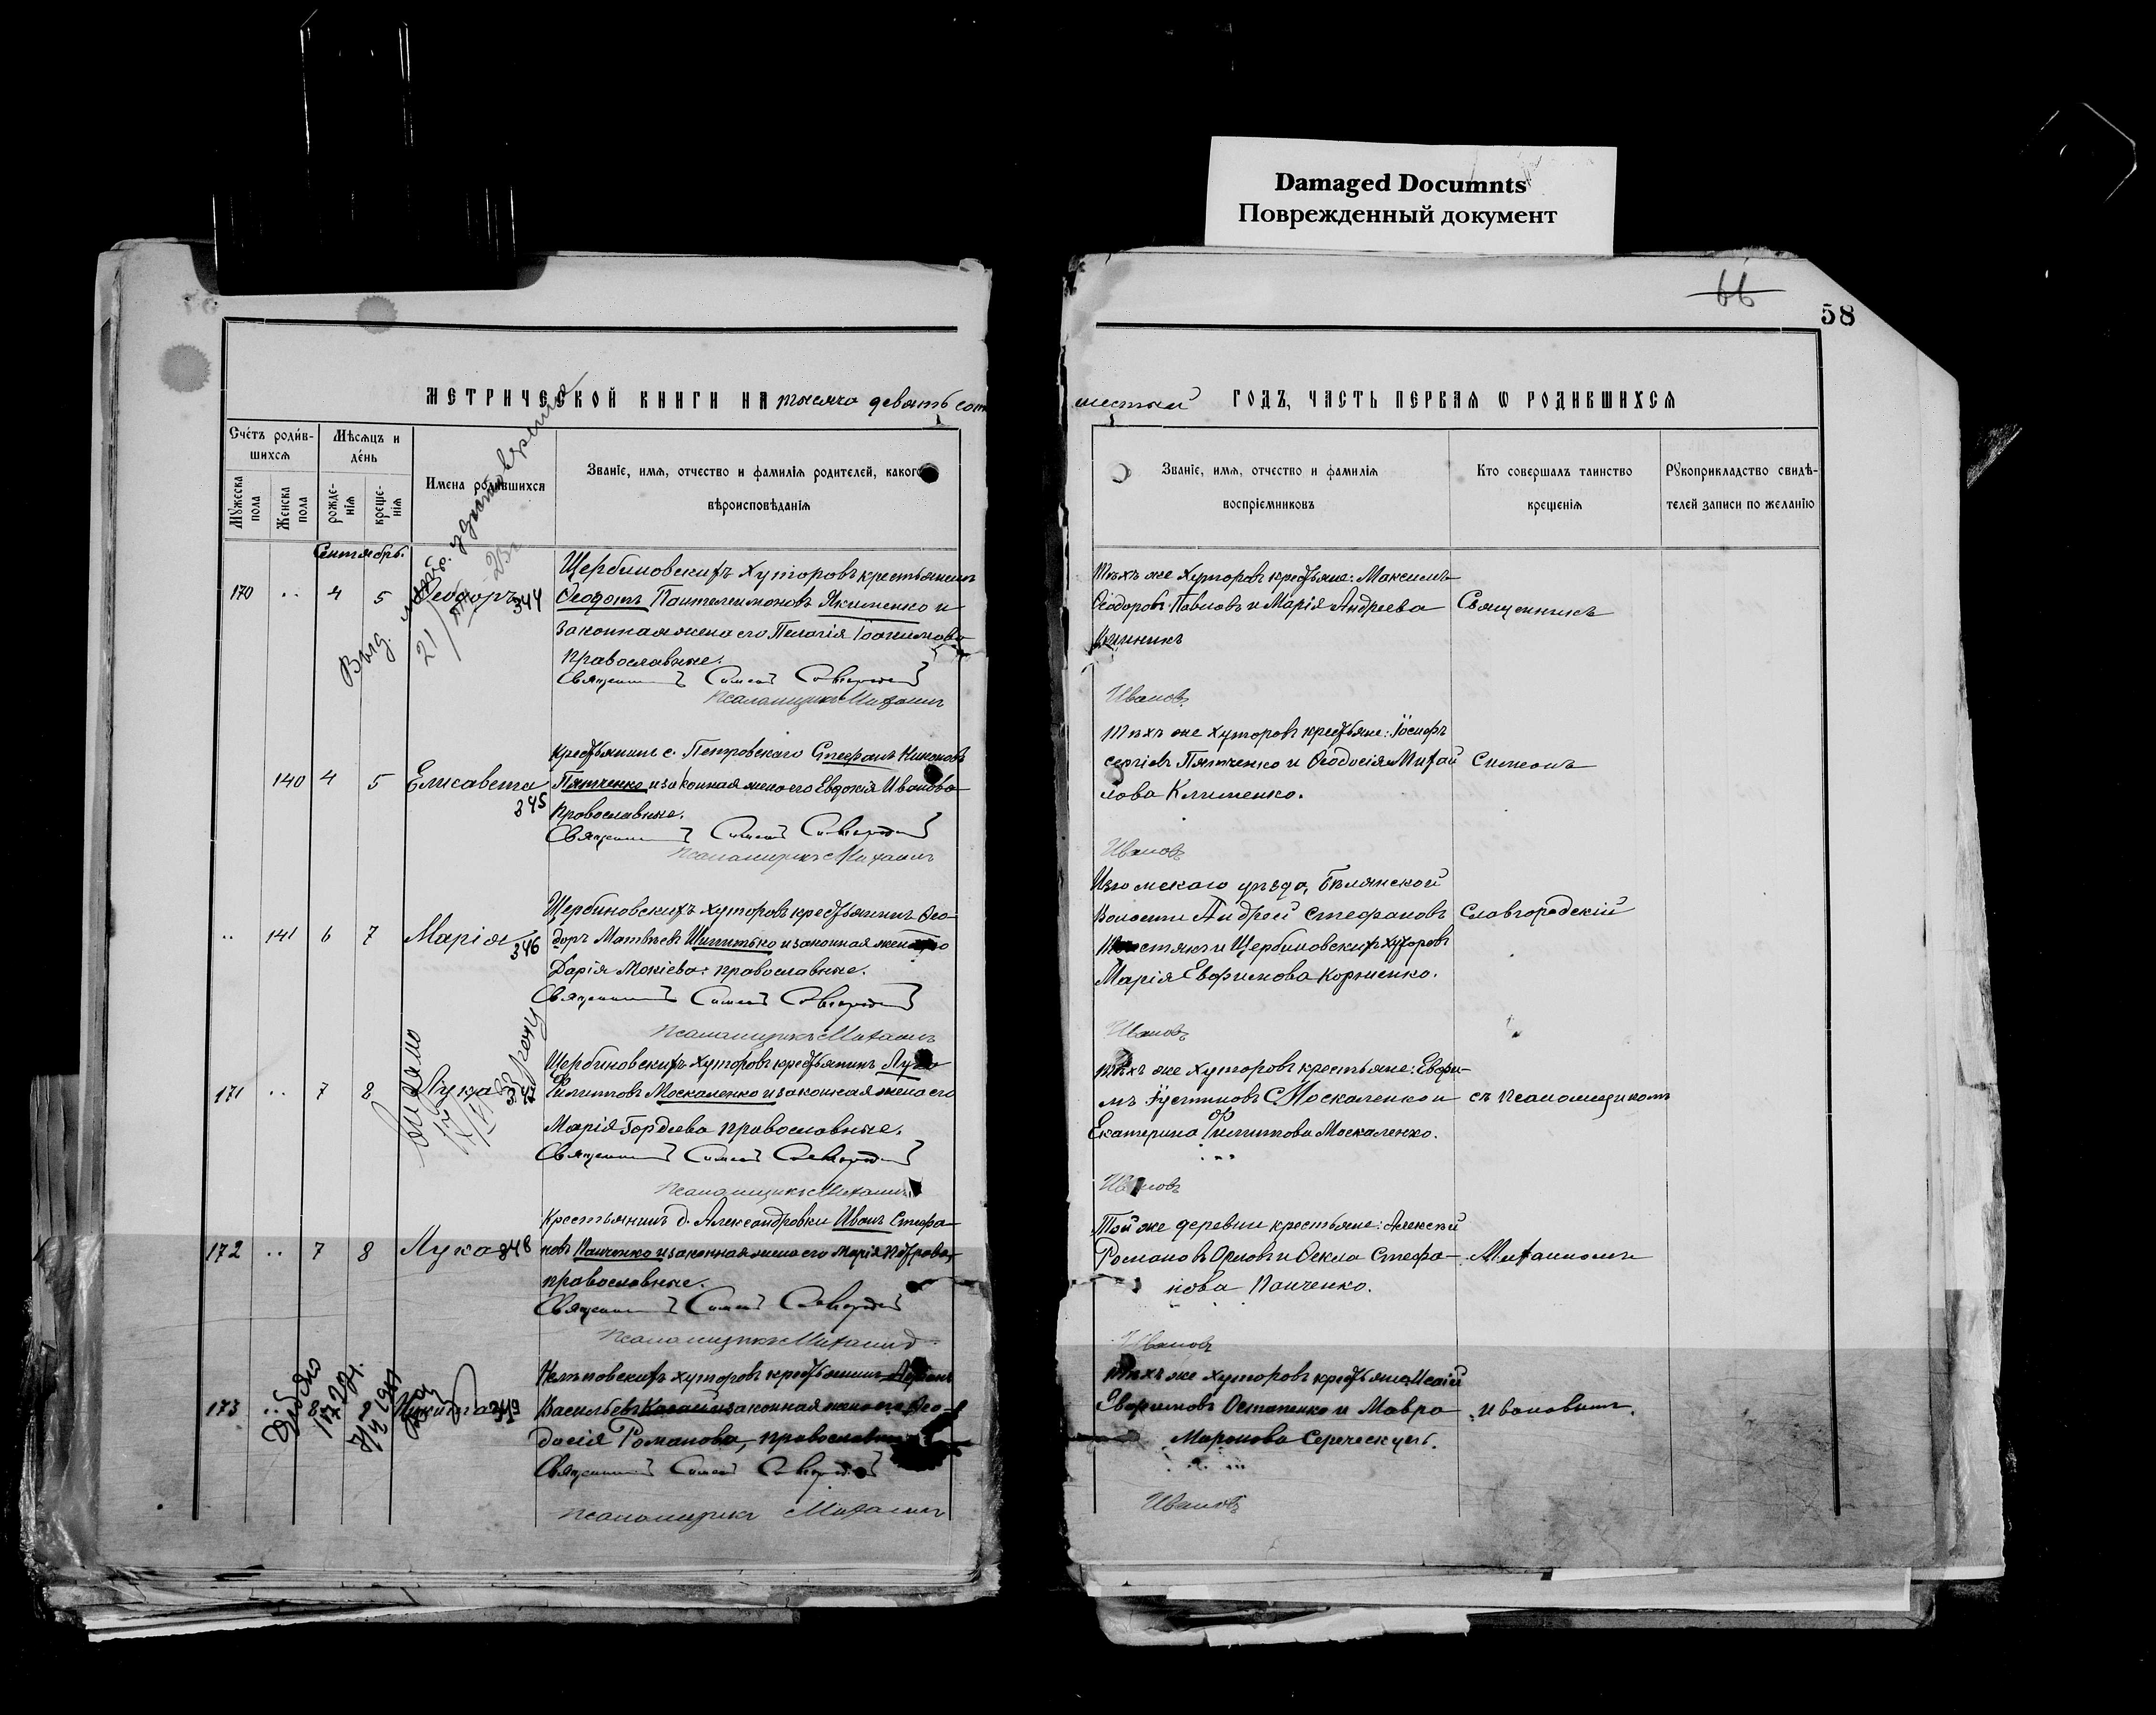 Damaged Documnts
Поврежденный документ
66
58
МЕТРИЧЕСКОЙ КНИГИ НА тысяча девятьсот
шестый ГОДЪ, ЧАСТЬ ПЕРВАЯ Ѡ РОДИВШИХСЯ
Счетъ родив-
шихся
Мѣсяцъ и
день
Мужеска пола
Женска пола
рожде-
нія
креще-
нія
Имена родившихся
Званіе, имя, отчество и фамилія родителей, какого
вѣроисповѣданія
Званіе, имя, отчество и фамилія
воспріемниковъ
Кто совершалъ таинство
крещенія
Рукоприкладство свидѣ-
телей записи по желанію
Сентябрь.
170 .. 4 5 Ѳеодоръ 344
Щербиновскихъ хуторовъ крестьянинъ
Ѳеодотъ Пантелеимоновъ Якименко и
законная жена его Пелагія Іоакимова
православные.
Священникъ Симеонъ
Псаломщикъ Михаилъ
Тѣхъ же хуторовъ крестьяне: Максимъ
Ѳеодоровъ Павловъ и Марія Андреева
Священникъ
Ивановъ
140 4 5 Елисавета 345
Крестьянинъ с. Петровскаго Стефанъ Никоновъ
Пятченко и законная жена его Евдокія Иванова
православные.
Священникъ Симеонъ
Псаломщикъ Михаилъ
Тѣхъ же хуторовъ крестьяне: Іосифъ
Сергіевъ Пятченко и Ѳеодосія Михай
лова Клименко.
Симеонъ
Ивановъ
.. 141 6 7 Марія 346
Щербиновскихъ хуторовъ крестьянинъ Ѳео-
доръ Матвѣевъ и законная жена его
Дарія Мокіева: православные.
Священникъ Симеонъ
Псаломщикъ Михаилъ
Изюмскаго уѣзда, Бѣлянской
Волости Андрей Стефановъ
и Щербиновскихъ хуторовъ
Марія Евфимова Корніенко.
Славгородскій
Ивановъ
171 .. 7 8 Лука 347
Щербиновскихъ хуторовъ крестьянинъ Лука
Филипповъ Москаленко и законная жена его
Марія Гордеева православные.
Священникъ Симеонъ
Псаломщикъ Михаилъ
Тѣхъ же хуторовъ крестьяне: Евфи-
мъ Іустиновъ Москаленко и
Екатерина Филиппова Москаленко.
съ псаломщикомъ
Ивановъ
172 .. 7 8 Лука 348
Крестьянинъ д. Александровки Иванъ Стефа-
новъ Панченко и законная жена его Марія Петрова,
православные.
Священникъ Симеонъ
Псаломщикъ Михаилъ
Той же деревни крестьяне: Алексѣй
Романовъ Орловъ и Ѳекла Стефа-
нова Панченко.
Михаиломъ
Ивановъ
173 .. 8 Никита 349
хуторовъ крестьянинъ
Васильевъ и законная жена его Ѳео-
досія Романова, православные
Священникъ Симеонъ
Псаломщикъ Михаилъ
Тѣхъ же хуторовъ крестьяне:
Евфимовъ Остапенко и Мавра
Миронова
Ивановымъ.
Ивановъ